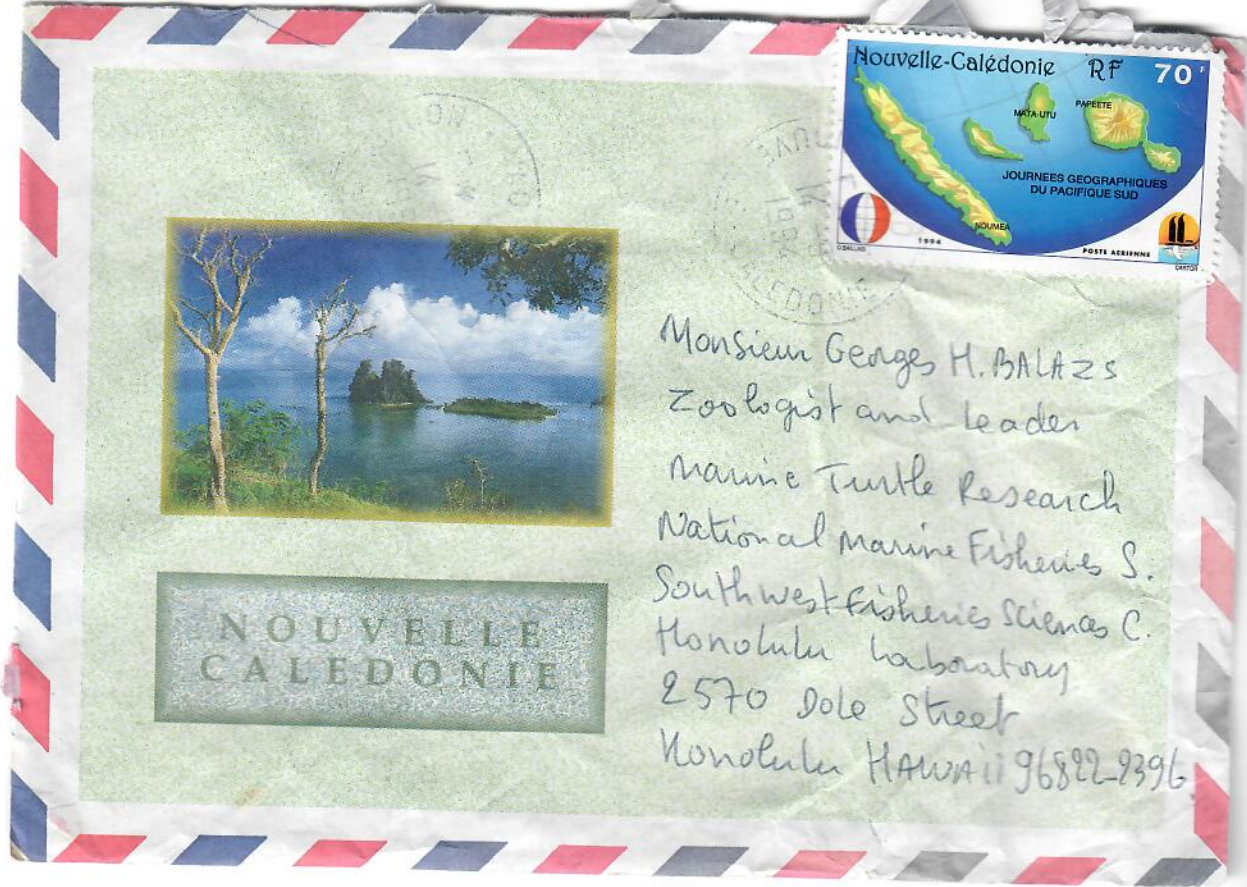 Nouvelle-Calédonie RF 70 F
MATA-UTU
PAPEETE
JOURNEES GEOGRAPHIQUES
DU PACIFIQUE SUD
NOUMEA
1994
POSTE AERIENNE
O.BALLAIS
CARTOR
Monsieur Georges H. BALAZS
Zoologist and Leader
Marine Turtle Research
National Marine Fisheries S.
Southwest Fisheries Sciences C.
Honolulu Laboratory
2570 Dole Street
Honolulu HAWAii 96822-2396
NOUVELLE
CALEDONIE